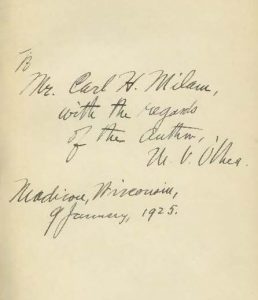 To
Mr. Carl H. Milam,
with the regards
of the author,
M. V. O'Shea.
Madison, Wisconsin,
9 January, 1925.